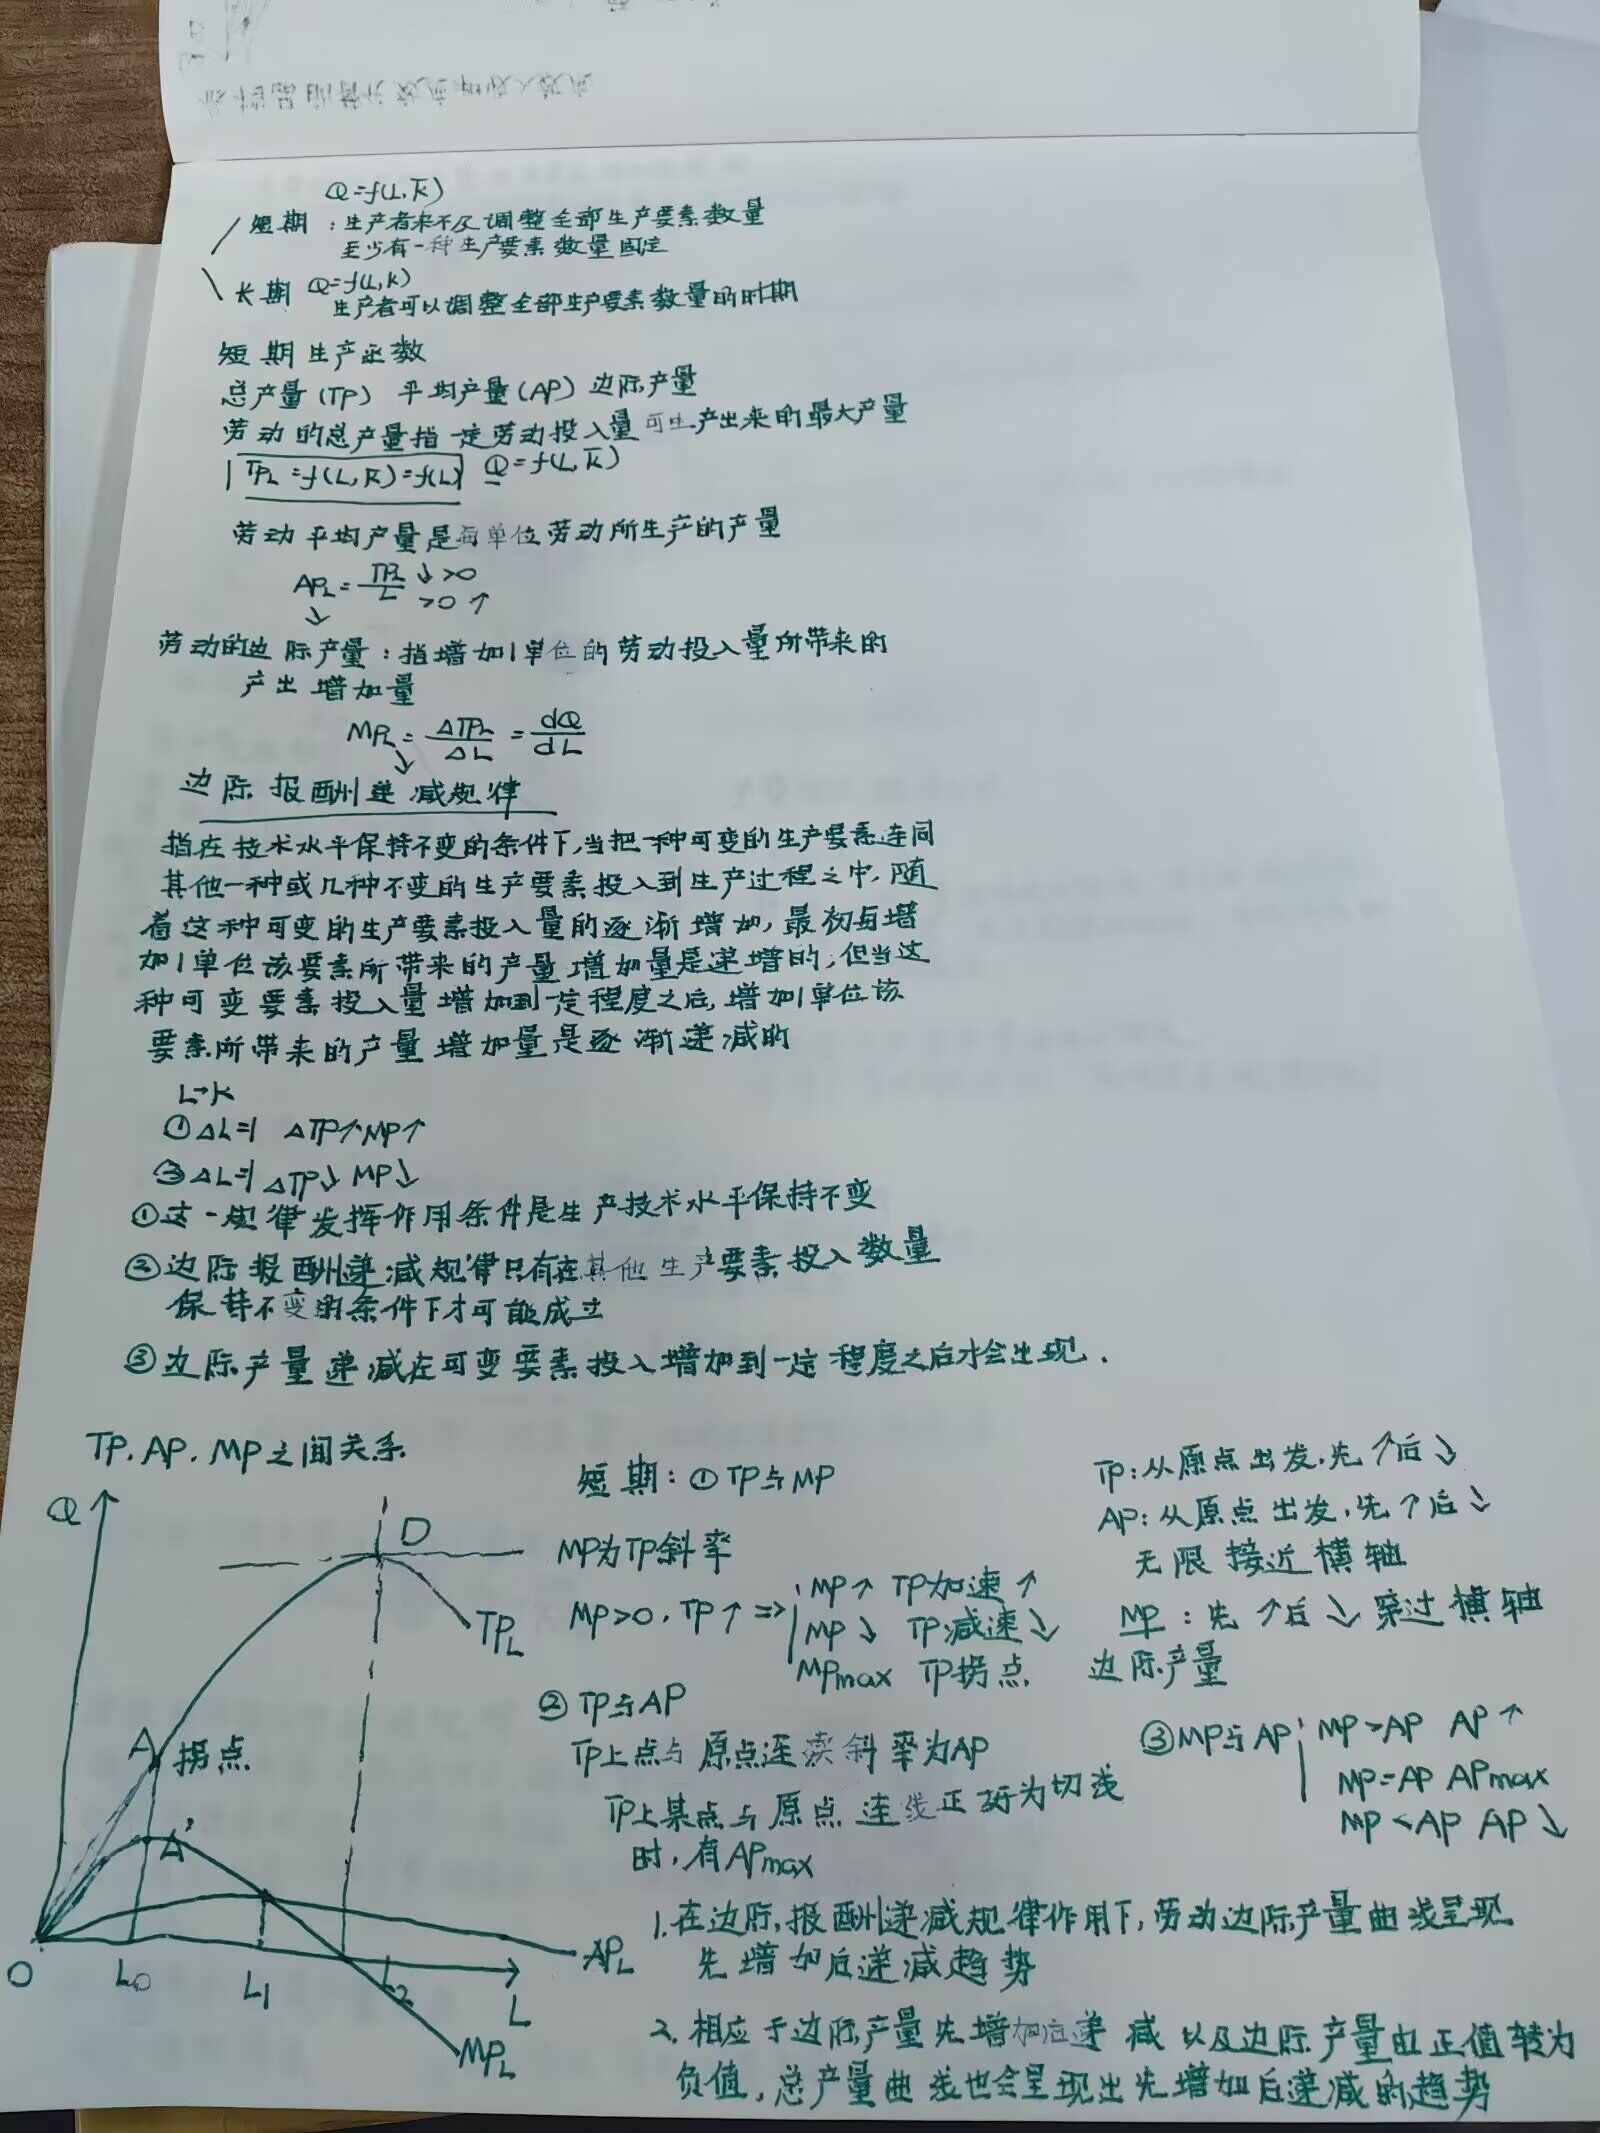 Q=f(L,K̅)
短期：生产者来不及调整全部生产要素数量
至少有一种生产要素数量固定
长期 Q=f(L,K)
生产者可以调整全部生产要素数量的时期
短期生产函数
总产量(TP) 平均产量(AP) 边际产量
劳动的总产量指一定劳动投入量可生产出来的最大产量
TP_L=f(L,K̅)=f(L) Q=f(L,K̅)
劳动平均产量是每单位劳动所生产的产量
AP_L=TP_L/L ↓>0 >0↑
↓
劳动的边际产量：指增加1单位的劳动投入量所带来的
产出增加量
MP_L=ΔTP_L/ΔL=dQ/dL
↓
边际报酬递减规律
指在技术水平保持不变的条件下,当把一种可变的生产要素连同
其他一种或几种不变的生产要素投入到生产过程之中,随
着这种可变的生产要素投入量的逐渐增加,最初每增
加1单位该要素所带来的产量增加量是递增的,但当这
种可变要素投入量增加到一定程度之后,增加1单位该
要素所带来的产量增加量是逐渐递减的
L→K
①ΔL=1 ΔTP↑MP↑
②ΔL=1 ΔTP↓ MP↓
①这一规律发挥作用条件是生产技术水平保持不变
②边际报酬递减规律只有在其他生产要素投入数量
保持不变的条件下才可能成立
③边际产量递减在可变要素投入增加到一定程度之后才会出现.
TP.AP.MP之间关系
Q
D
TP_L
A
拐点
A'
O
L0
L1
L2
L
AP_L
MP_L
短期：①TP与MP
MP为TP斜率
MP>0,TP↑=>
MP↑ TP加速↑
MP↓ TP减速↓
MPmax TP拐点
②TP与AP
TP上点与原点连续斜率为AP
TP上某点与原点连线正好为切线
时,有APmax
TP:从原点出发,先↑后↓
AP:从原点出发,先↑后↓
无限接近横轴
MP:先↑后↓穿过横轴
边际产量
③MP与AP
MP>AP AP↑
MP=AP APmax
MP<AP AP↓
1.在边际报酬递减规律作用下,劳动边际产量曲线呈现
先增加后递减趋势
2.相应于边际产量先增加后递减以及边际产量由正值转为
负值,总产量曲线也会呈现出先增加后递减的趋势